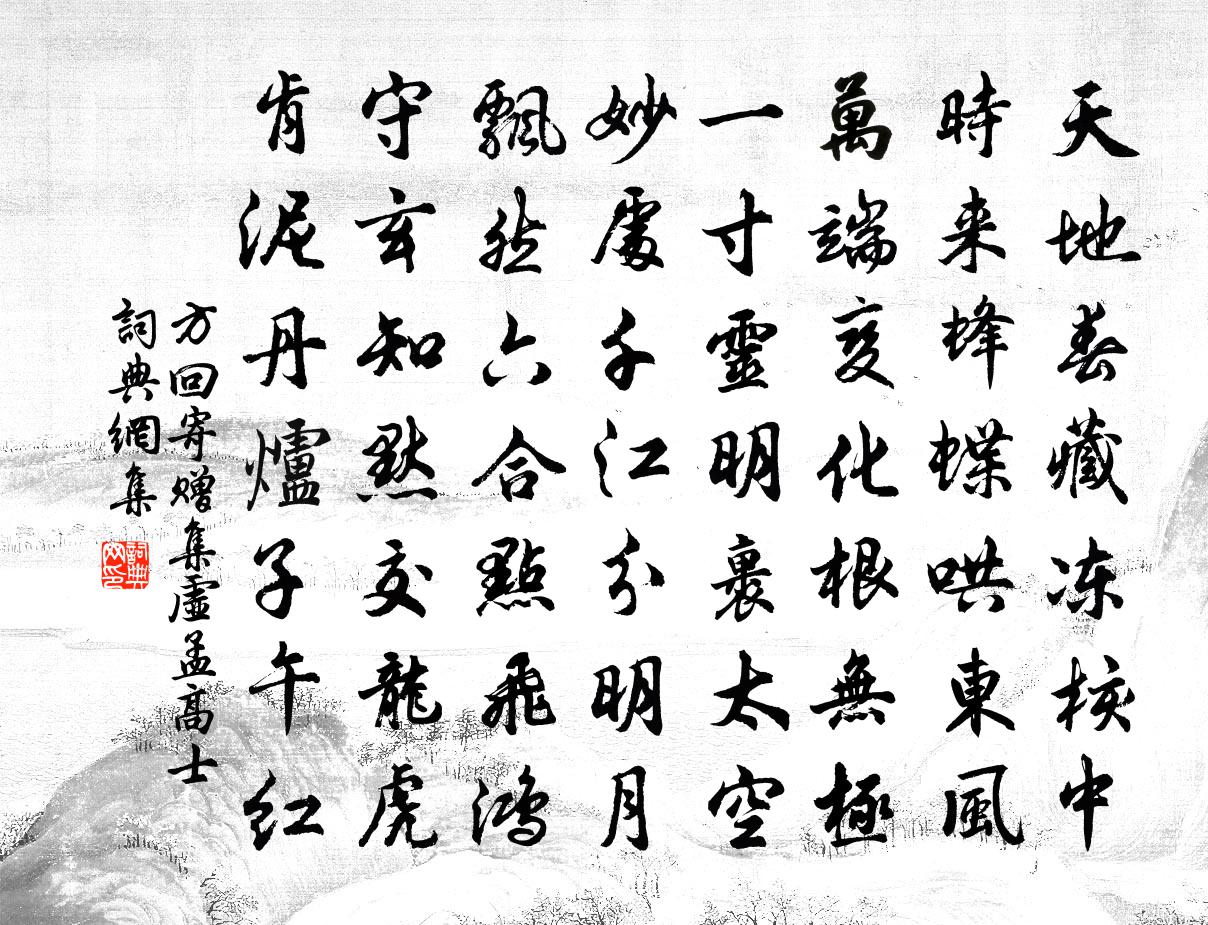 天地春藏冻核中
時来蜂蝶哄東風
萬端变化根無極
一寸靈明裹太空
妙處千江分明月
飄然六合點飛鴻
守玄知默交龍虎
肯泥丹爐子午红
方回寄赠集虛孟高士
詞典網集
詞典